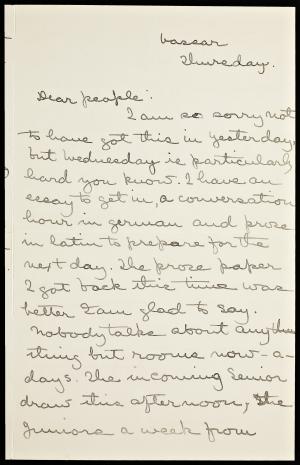 Vassar
Thursday.
Dear people:
I am so sorry not
to have got this in yesterday,
but Wednesday is particularly
hard you know. I have an
essay to get in, a conversation
hour in german and prose
in latin to prepare for the
next day. The prose paper
I got back this time was
better I am glad to say.
Nobody talks about any
thing but rooms now-a-
days. The incoming Senior
draw this afternoon, the
Juniors a week from